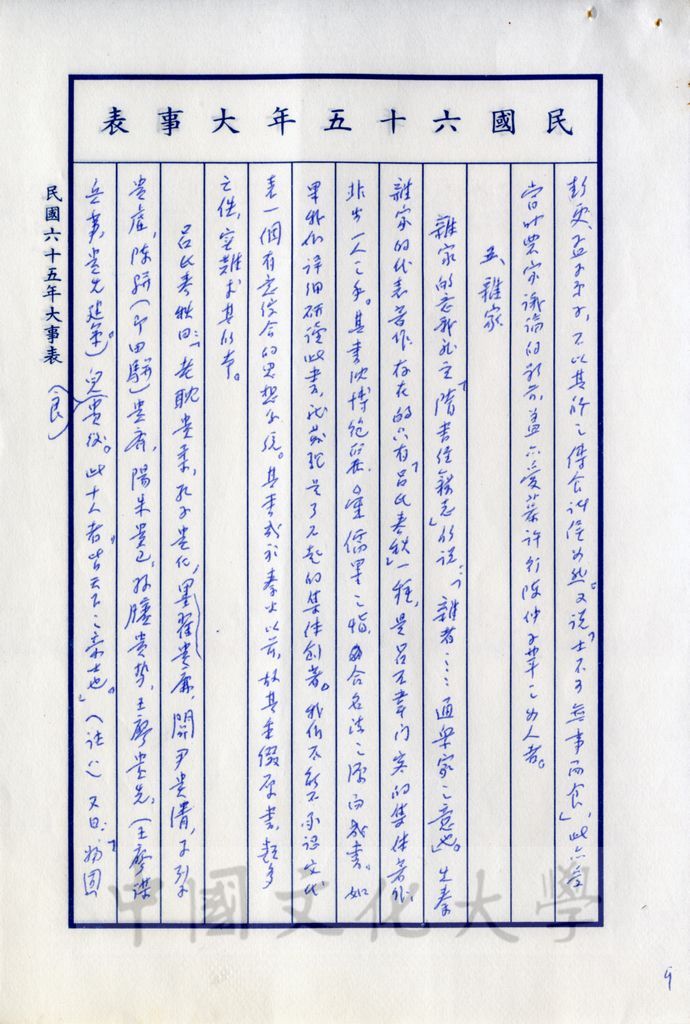 民國六十五年大事表
彭更、孟子弟子，不以其所之傳食諸侯為然。又說「士不可無事而食」，此亦受
當時農家議論的影響，蓋亦受慕許行陳仲子輩之為人者。
五、雜家
雜家的意義，「隋書經籍志」的說：「雜者……通眾家之意也。」先秦
雜家的代表著作，存在的只有「呂氏春秋」一種，是呂不韋門客的集体著作，
非出一人之手。其書沈博絕麗，彙儒墨之恉，合名法之源而成書。如
果我們詳細研讀此書，
是了不起的集体創著。我們不能不承認文化
表一個有意綜合的思想系統。其書成於秦火以前，故其書綴原書，類多
亡佚，
呂氏春秋曰：「老耽貴柔，孔子貴仁，墨翟貴廉，關尹貴清，子列子
貴虛，陳駢（即田駢）貴齊，陽朱貴己，孫臏貴勢，王廖貴先，（王廖謀
兵事，貴先建策）兒良貴後。此十人者皆天下之豪士也。」（註八）又曰：「物固
（良）
民國六十五年大事表
中國文化大學
9